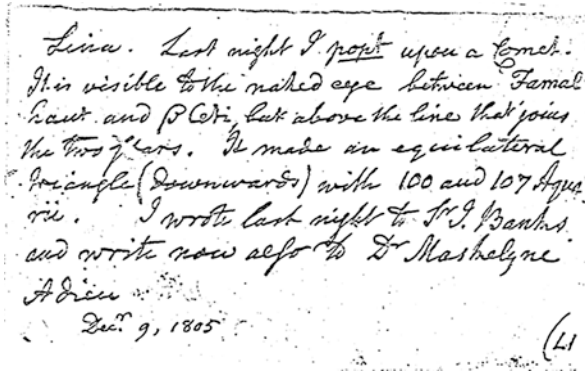 Lina. Last night I popt upon a Comet.
It is visible to the naked eye between Famal
haut and β Ceti, but above the line that joins
the two stars. It made an equilateral
triangle (downwards) with 100 and 107 Aqua
rii. I wrote last night to Sr J. Banks
and write now also to Dr Maskelyne
Adieu
Decr 9, 1805
(LI